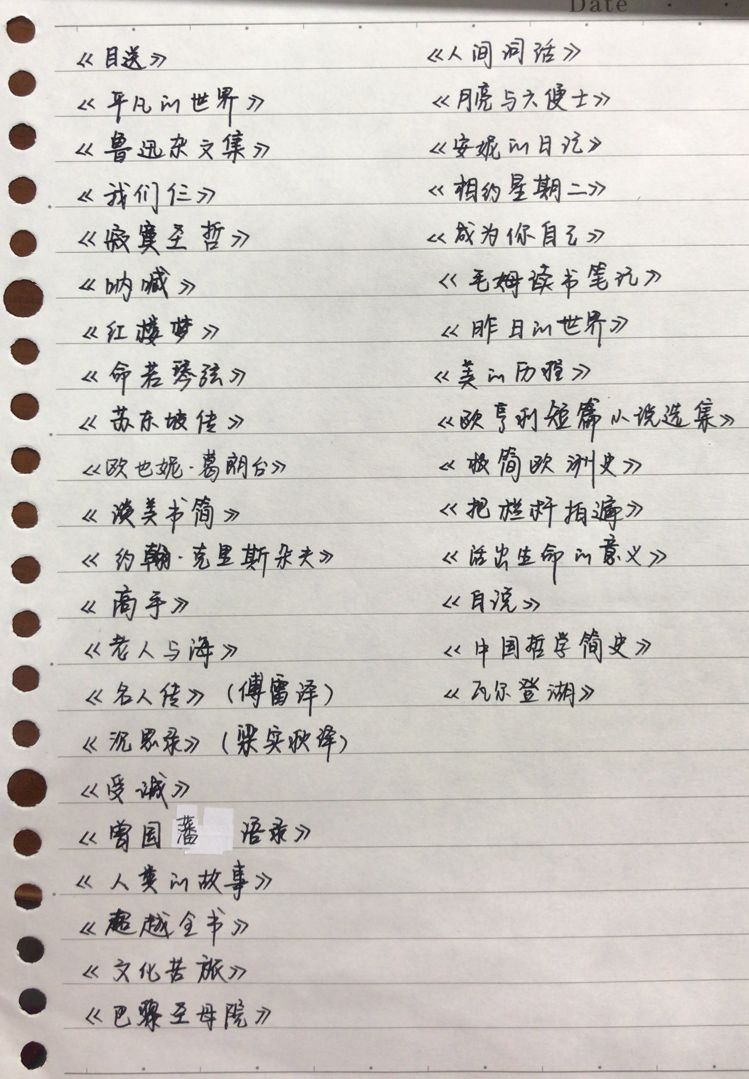 Date
《目送》
《平凡的世界》
《鲁迅杂文集》
《我们仨》
《寂寞圣哲》
《呐喊》
《红楼梦》
《命若琴弦》
《苏东坡传》
《欧也妮·葛朗台》
《谈美书简》
《约翰·克里斯朵夫》
《高手》
《老人与海》
《名人传》(傅雷译)
《沉思录》(梁实秋译)
《受诫》
《曾国藩 语录》
《人类的故事》
《超越全书》
《文化苦旅》
《巴黎圣母院》
《人间词话》
《月亮与六便士》
《安妮的日记》
《相约星期二》
《成为你自己》
《毛姆读书笔记》
《昨日的世界》
《美的历程》
《欧亨利短篇小说选集》
《极简欧洲史》
《把栏杆拍遍》
《活出生命的意义》
《自说》
《中国哲学简史》
《瓦尔登湖》